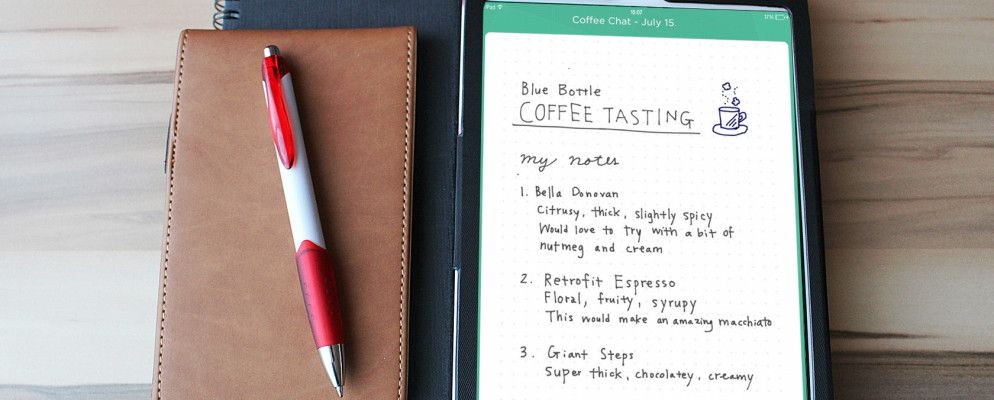 iPad 18:07 17%
Coffee Chat - July 15.
Blue Bottle
COFFEE TASTING
my notes
1. Bella Donovan
Citrusy, thick, slightly spicy
Would love to try with a bit of
nutmeg and cream
2. Retrofit Espresso
Floral, fruity, syrupy
This would make an amazing macchiato
3. Giant Steps
Super thick, chocolatey, creamy